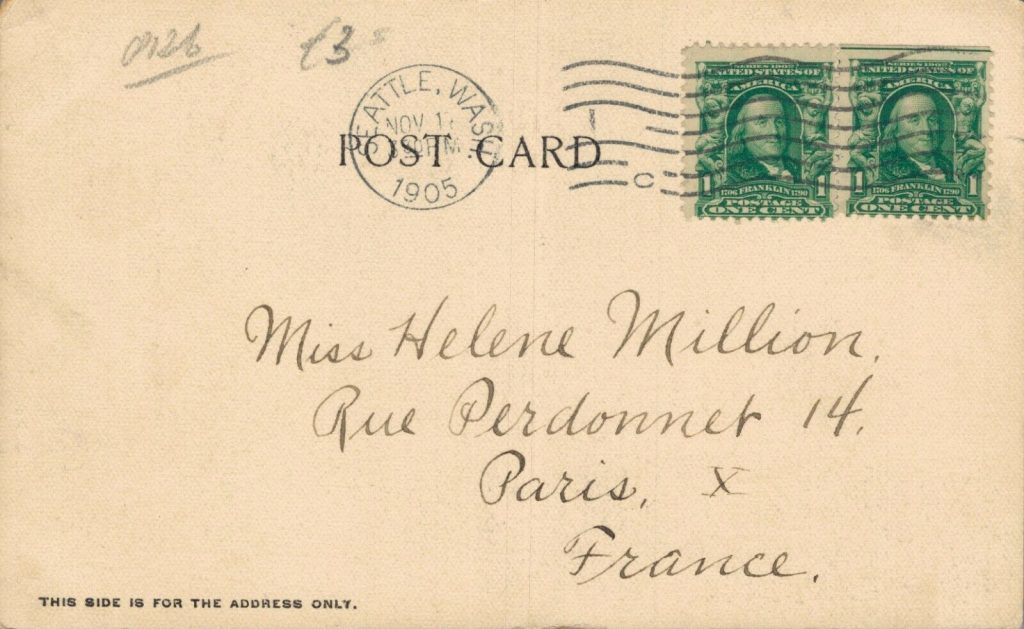 £3
SEATTLE, WASH.
NOV
1905
POST CARD
C
SERIES 1902
UNITED STATES OF
AMERICA
1 1706 FRANKLIN 1790 1
POSTAGE
ONE CENT
SERIES 1902
UNITED STATES OF
AMERICA
1 1706 FRANKLIN 1790 1
POSTAGE
ONE CENT
Miss Helene Million,
Rue Perdonnet 14.
Paris, X
France.
THIS SIDE IS FOR THE ADDRESS ONLY.